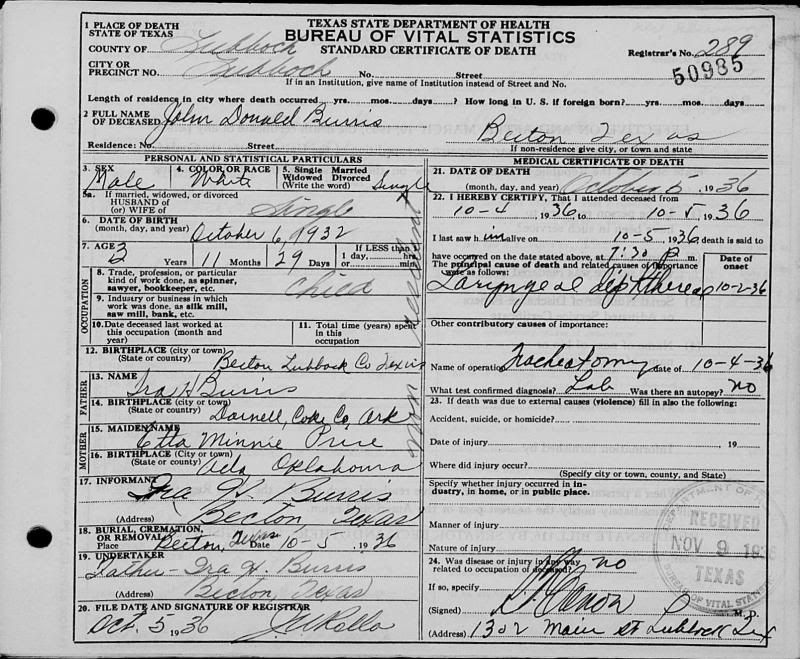 TEXAS STATE DEPARTMENT OF HEALTH
BUREAU OF VITAL STATISTICS
STANDARD CERTIFICATE OF DEATH
1 PLACE OF DEATH
STATE OF TEXAS
COUNTY OF Lubbock
Registrar's No. 289
50985
CITY OR
PRECINCT NO. Lubbock No. Street
If in an Institution, give name of Institution instead of Street and No.
Length of residence in city where death occurred yrs. mos. days ? How long in U. S. if foreign born? yrs. mos. days ?
2 FULL NAME
OF DECEASED John Donald Burris
Residence: No. Street Becton Texas
If non-residence give city, or town and state
PERSONAL AND STATISTICAL PARTICULARS
3. SEX Male
4. COLOR OR RACE White
5. Single Married
Widowed Divorced
(Write the word) Single
5a. If married, widowed, or divorced
HUSBAND OF
(or) WIFE of Single
6. DATE OF BIRTH
(month, day, and year) October 6, 1932
7. AGE 3 Years 11 Months 29 Days
If LESS than
1 day, hrs
or min.
OCCUPATION
8. Trade, profession, or particular
kind of work done, as spinner,
sawyer, bookkeeper, etc. Child
9. Industry or business in which
work was done, as silk mill,
saw mill, bank, etc.
10. Date deceased last worked at
this occupation (month and
year)
11. Total time (years) spent
in this
occupation
12. BIRTHPLACE (city or town)
(State or country) Becton Lubbock Co Texas
FATHER
13. NAME
Ira H Burris
14. BIRTHPLACE (city or town)
(State or country) Co, Ark
MOTHER
15. MAIDEN NAME
Etta Minnie Price
16. BIRTHPLACE (city or town)
(State or country) Ada Oklahoma
17. INFORMANT
Ira H. Burris
(Address) Becton, Texas
18. BURIAL, CREMATION,
OR REMOVAL
Place Becton, Texas Date 10-5, 1936
19. UNDERTAKER
Father - Ira H. Burris
(Address) Becton, Texas
20. FILE DATE AND SIGNATURE OF REGISTRAR
Oct. 5 1936
non resident
MEDICAL CERTIFICATE OF DEATH
21. DATE OF DEATH
(month, day, and year) October 5, 1936
22. I HEREBY CERTIFY, That I attended deceased from
10-4, 1936 to 10-5, 1936
I last saw him alive on 10-5, 1936 death is said to
have occurred on the date stated above, at 7:30 p m.
The principal cause of death and related causes of importance
were as follows:
Date of
onset
Laryngeal diphtherea 10-2-36
Other contributory causes of importance:
Name of operation Tracheotomy date of 10-4-36
What test confirmed diagnosis? Lab Was there an autopsy? no
23. If death was due to external causes (violence) fill in also the following:
Accident, suicide, or homicide?
Date of injury , 19
Where did injury occur?
(Specify city or town, county, and State)
Specify whether injury occurred in in-
dustry, in home, or in public place.
Manner of injury
Nature of injury
24. Was disease or injury in any way
related to occupation of deceased? no
If so, specify
(Signed) M. D.
(Address) 1302 Main St Lubbock Tex
RECEIVED
NOV 9 1936
TEXAS
BUREAU OF VITAL STATISTICS